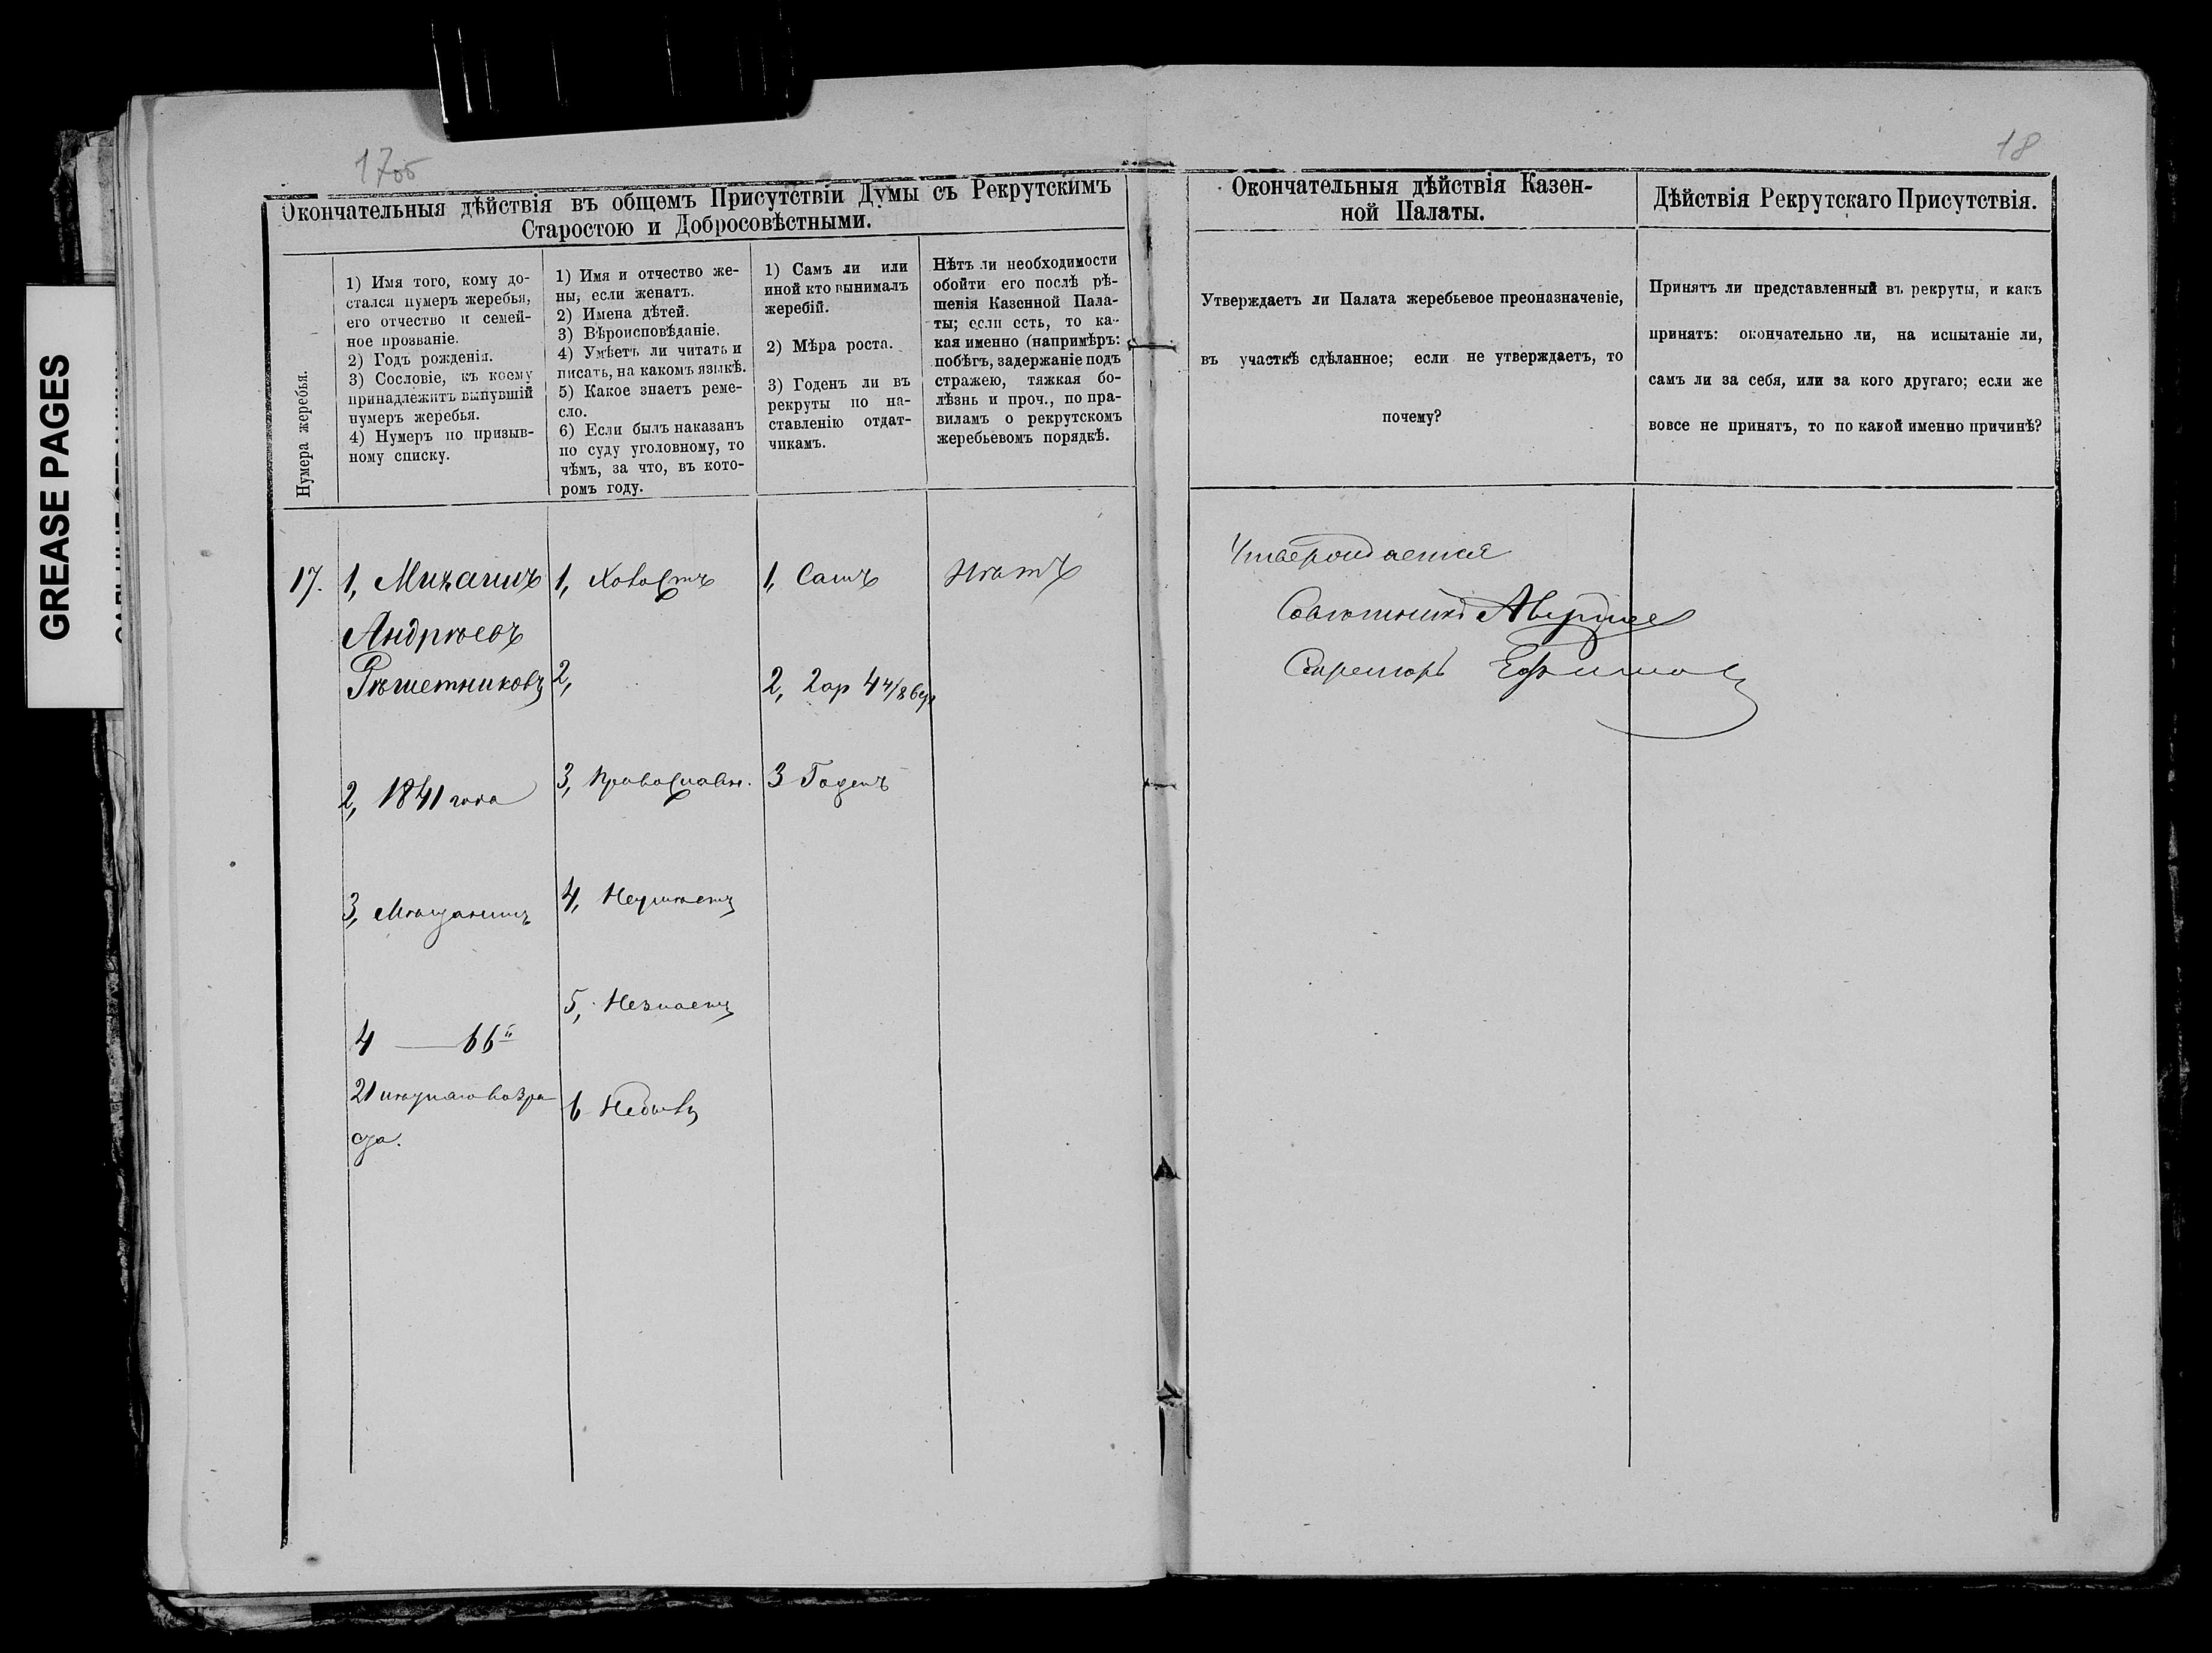 GREASE PAGES
17об
18
Окончательныя дѣйствія въ общемъ Присутствіи Думы съ Рекрутскимъ
Старостою и Добросовѣстными.
Нумера жеребья.
1) Имя того, кому до-
стался нумеръ жеребья,
его отчество и семей-
ное прозваніе.
2) Годъ рожденія.
3) Сословіе, къ коему
принадлежитъ вынувшій
нумеръ жеребья.
4) Нумеръ по призыв-
ному списку.
1) Имя и отчество же-
ны, если женатъ.
2) Имена дѣтей.
3) Вѣроисповѣданіе.
4) Умѣетъ ли читать и
писать, на какомъ языкѣ.
5) Какое знаетъ реме-
сло.
6) Если былъ наказанъ
по суду уголовному, то
чѣмъ, за что, въ кото-
ромъ году.
1) Самъ ли или
иной кто вынималъ
жеребій.
2) Мѣра роста.
3) Годенъ ли въ
рекруты по на-
ставленію отдат-
чикамъ.
Нѣтъ ли необходимости
обойти его послѣ рѣ-
шенія Казенной Пала-
ты; если есть, то ка-
кая именно (напримѣръ:
побѣгъ, задержаніе подъ
стражею, тяжкая бо-
лѣзнь и проч., по пра-
виламъ о рекрутскомъ
жеребьевомъ порядкѣ.
17.
1, Михаилъ
Андрѣевъ
Рѣшетниковъ
2, 1841 года
3, Мѣщанинъ
4 — 66й
21
1, Холостъ
2,
3, Православн.
4, Неумѣетъ
5, Незнаетъ
6 Небылъ
1, Самъ
2, 2ар 4 4/8 вер
3 Годенъ
Нѣтъ
Окончательныя дѣйствія Казен-
ной Палаты.
Утверждаетъ ли Палата жеребьевое преоназначеніе,
въ участкѣ сдѣланное; если не утверждаетъ, то
почему?
Утверждается
Совѣтникъ
Секретарь Ефимовъ
Дѣйствія Рекрутскаго Присутствія.
Принятъ ли представленный въ рекруты, и какъ
принятъ: окончательно ли, на испытаніе ли,
самъ ли за себя, или за кого другаго; если же
вовсе не принятъ, то по какой именно причинѣ?